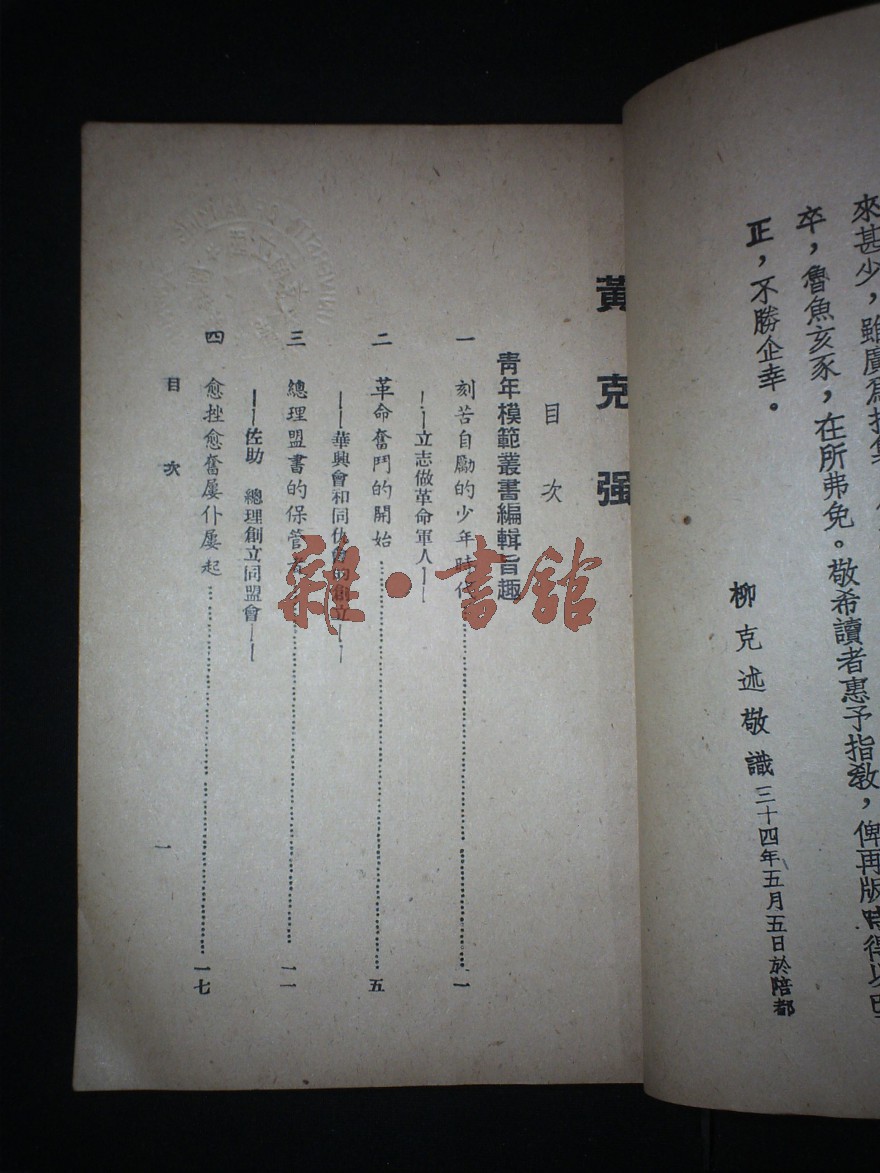 來甚少，雖廣爲
卒，魯魚亥豕，在所弗免。敬希讀者惠予指教，俾再版時得以
正，不勝企幸。
柳克述敬識 三十四年五月五日於陪都
黃克强
目次
青年模範叢書編輯旨趣
一 刻苦自勵的少年時 一
——立志做革命軍人——
二 革命奮鬥的開始 五
——華興會和同仇會的創立——
三 總理盟書的保管 一一
——佐助 總理創立同盟會——
四 愈挫愈奮屢仆屢起 一七
目次
一
雜·書館